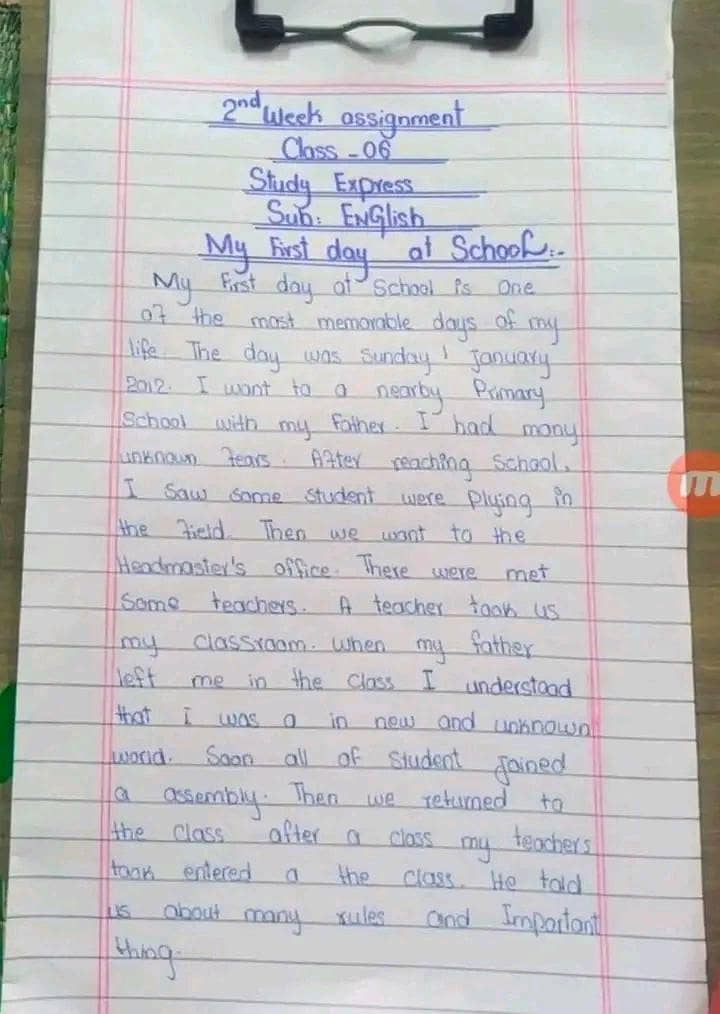 2nd Week assignment
Class - 06
Study Express
Sub: ENGlish
My First day at School:-
My First day at School is One
of the most memorable days of my
life. The day was Sunday 1 January
2012. I want to a nearby Primary
School with my Father. I had many
unknown fears. After reaching School,
I Saw some student were Plying in
the field. Then we want to the
Headmaster's office. There were met
Some teachers. A teacher took us
my classroom. when my father
left me in the Class I understood
that I was a in new and unknown
world. Soon all of Student Joined
a assembly. Then we returned to
the Class after a class my teachers
took entered a the class. He told
us about many rules and Important
thing.